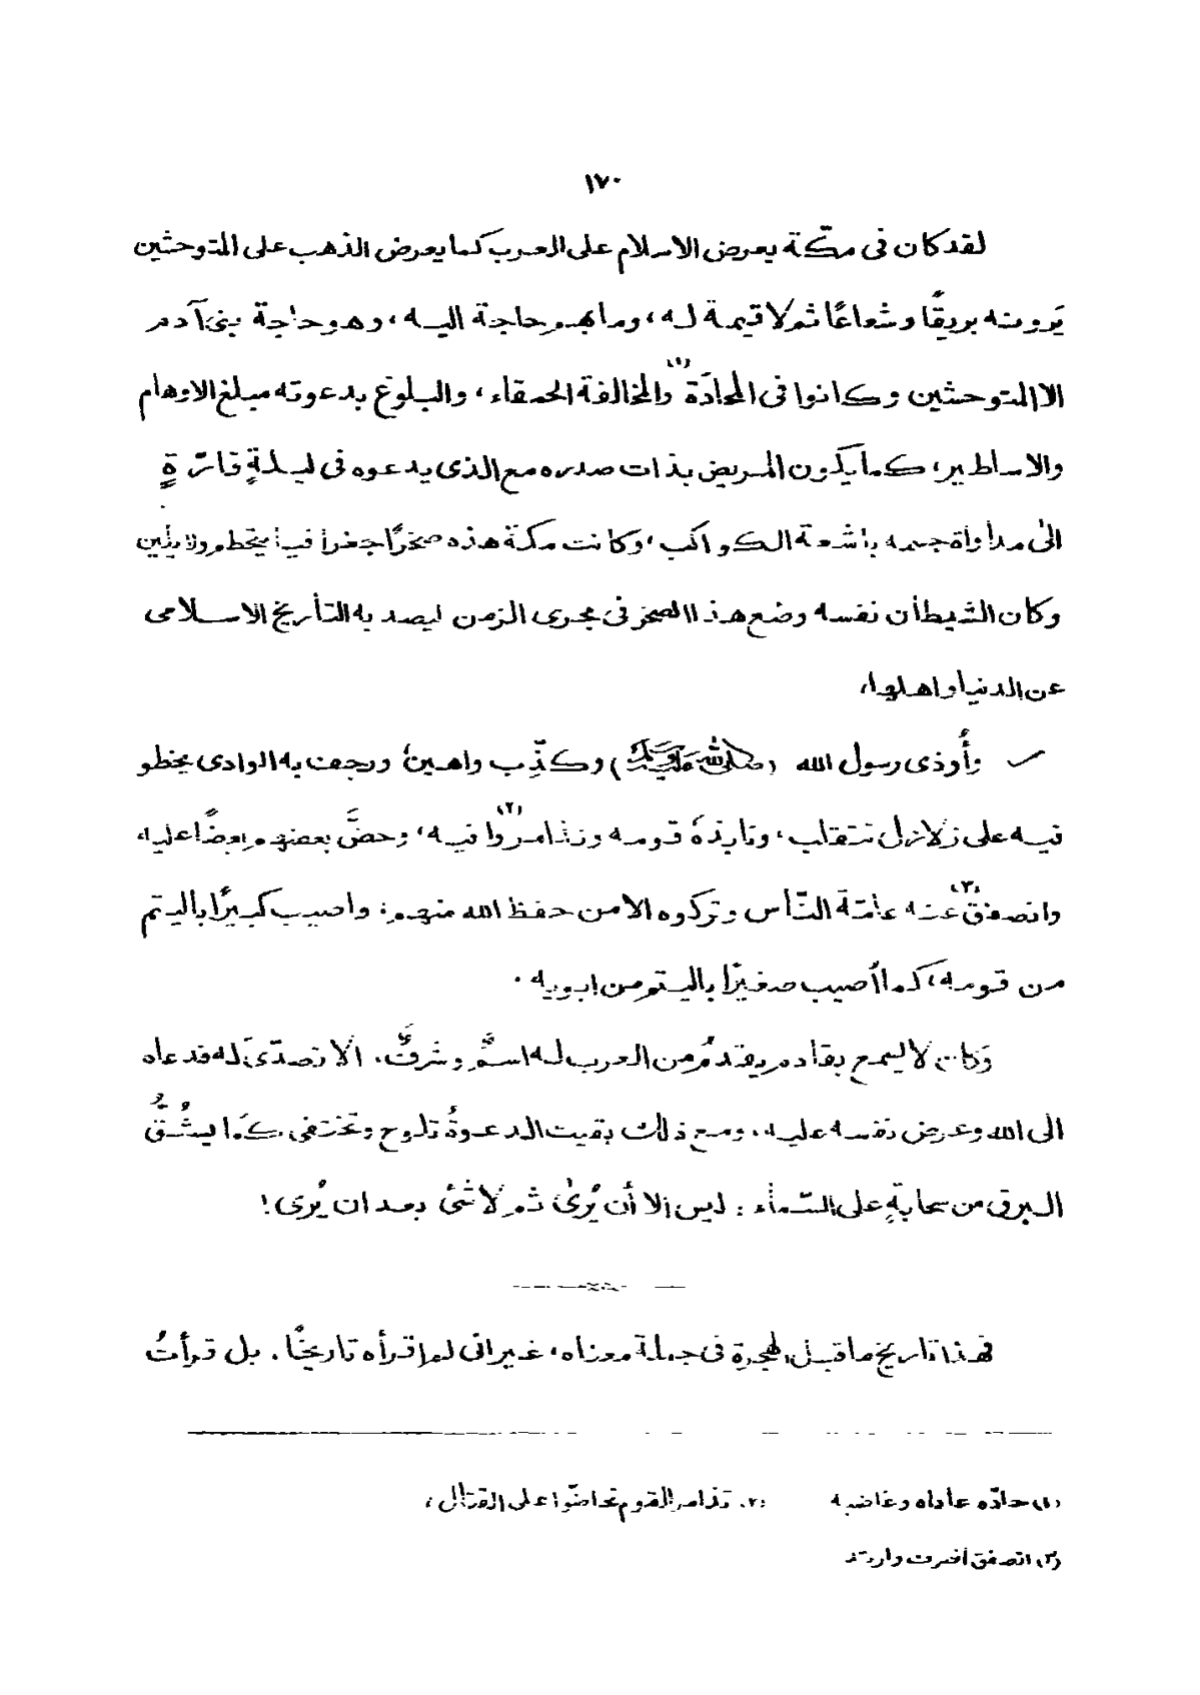 ١٧٠
لقد كان فى مكّة يعرض الاسلام على العرب كما يعرض الذهب على المتوحشين
يَرونه بريقًا وشعاعًا ثم لا قيمة له، وما بهم حاجة اليه، وهو حاجة بنى آدم
الا المتوحشين وكانوا فى المحادّة (١) والمخالفة الحمقاء، والبلوغ بدعوته مبلغ الاوهام
والاساطير، كما يكون المريض بذات صدره مع الذى يدعوه فى ليلةٍ قارّةٍ
الى مداواة جسمه باشعة الكواكب، وكانت مكة هذه صخرًا جغرافيا يتحطم ولا يلين
وكان الشيطان نفسه وضع هذا الصخر فى مجرى الزمن ليصد به التأريخ الاسلامى
عن الدنيا واهلها،
وأُوذى رسول الله (صلى الله عليه وسلم) وكذّب واهين ورجفت به الوادى يخطو
فيه على زلازل تتقلب، ونابذهٗ قومه وتذامروا (٢) فيه، وحضَّ بعضهم بعضًا عليه،
وانصفق (٣) عنه عامّة النّاس وتركوه الا من حفظ الله منهم، واصيب كبيرًا باليتم
من قومه، كما أُصيب صغيرًا باليتم من ابويه.
وَكان لا يسمع بقادم يقدمُ من العرب له اسمٌ وشرفٌ، الا تصدّىَ له فدعاه
الى الله وعرض نفسه عليه، ومع ذلك بقيت الدعوةُ تلوح وتختفى كمَا يشُقُّ
البرق من سحابةٍ على السّماء : ليس الا أن يُرىٰ ثم لا شئَ بعد ان يُرى!
فهذا تاريخ ما قبل الهجرة فى جملة معناه، غير انى لم اقرأه تاريخًا. بل قرأتُ
(١) حادّه عاداه وغاضبه (٢) تذامر القوم تحاضّوا على القتال،
(٣) انصفق انصرف وارتد